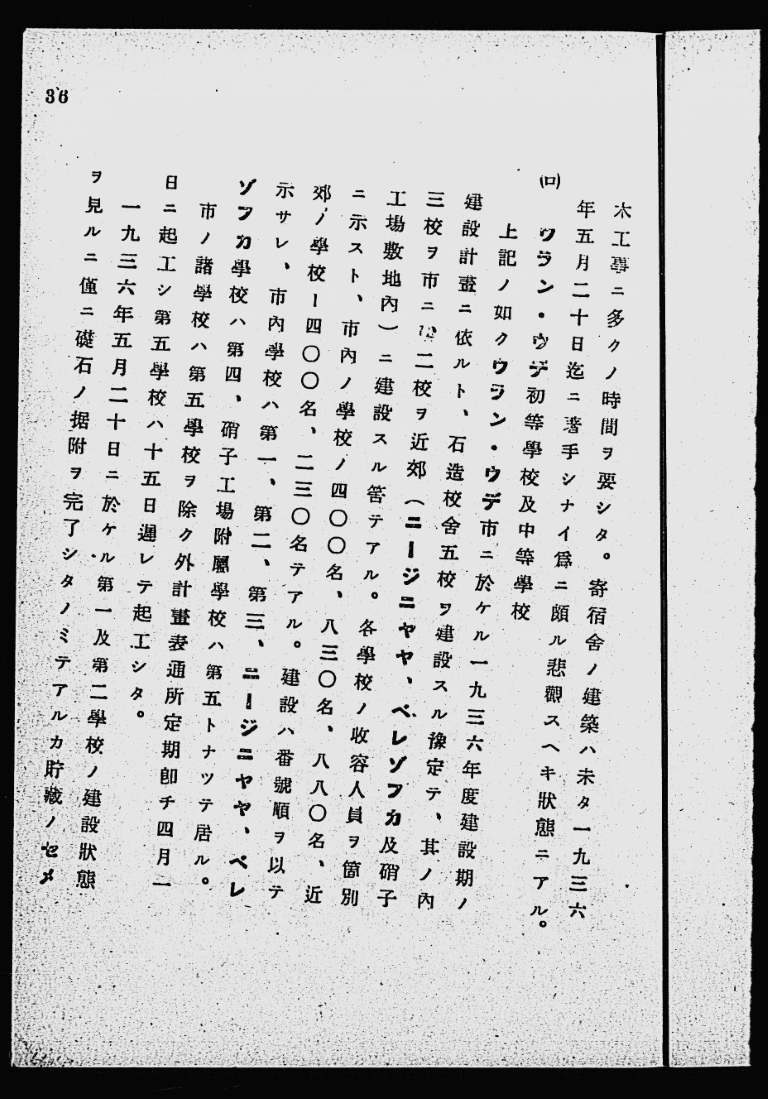 36
木工等ニ多クノ時間ヲ要シタ。寄宿舍ノ建築ハ未タ一九三六
年五月二十日迄ニ著手シナイ爲ニ頗ル悲觀スヘキ狀態ニアル。
(ロ) ウラン・ウデ初等學校及中等學校
上記ノ如クウラン・ウデ市ニ於ケル一九三六年度建設期ノ
建設計畫ニ依ルト、石造校舍五校ヲ建設スル豫定テ、其ノ內
三校ヲ市ニ、二校ヲ近郊(ニージニヤヤ、ベレゾフカ及硝子
工場敷地內)ニ建設スル筈テアル。各學校ノ收容人員ヲ箇別
ニ示スト、市內ノ學校ノ四〇〇名、八三〇名、八八〇名、近
郊ノ學校ー四〇〇名、二三〇名テアル。建設ハ番號順ヲ以テ
示サレ、市內學校ハ第一、第二、第三、ニージニヤヤ、ベレ
ゾフカ學校ハ第四、硝子工場附屬學校ハ第五トナツテ居ル。
市ノ諸學校ハ第五學校ヲ除ク外計畫表通所定期卽チ四月一
日ニ起工シ第五學校ハ十五日遲レテ起工シタ。
一九三六年五月二十日ニ於ケル第一及第二學校ノ建設狀態
ヲ見ルニ僅ニ礎石ノ据附ヲ完了シタノミテアルカ貯藏ノセメ